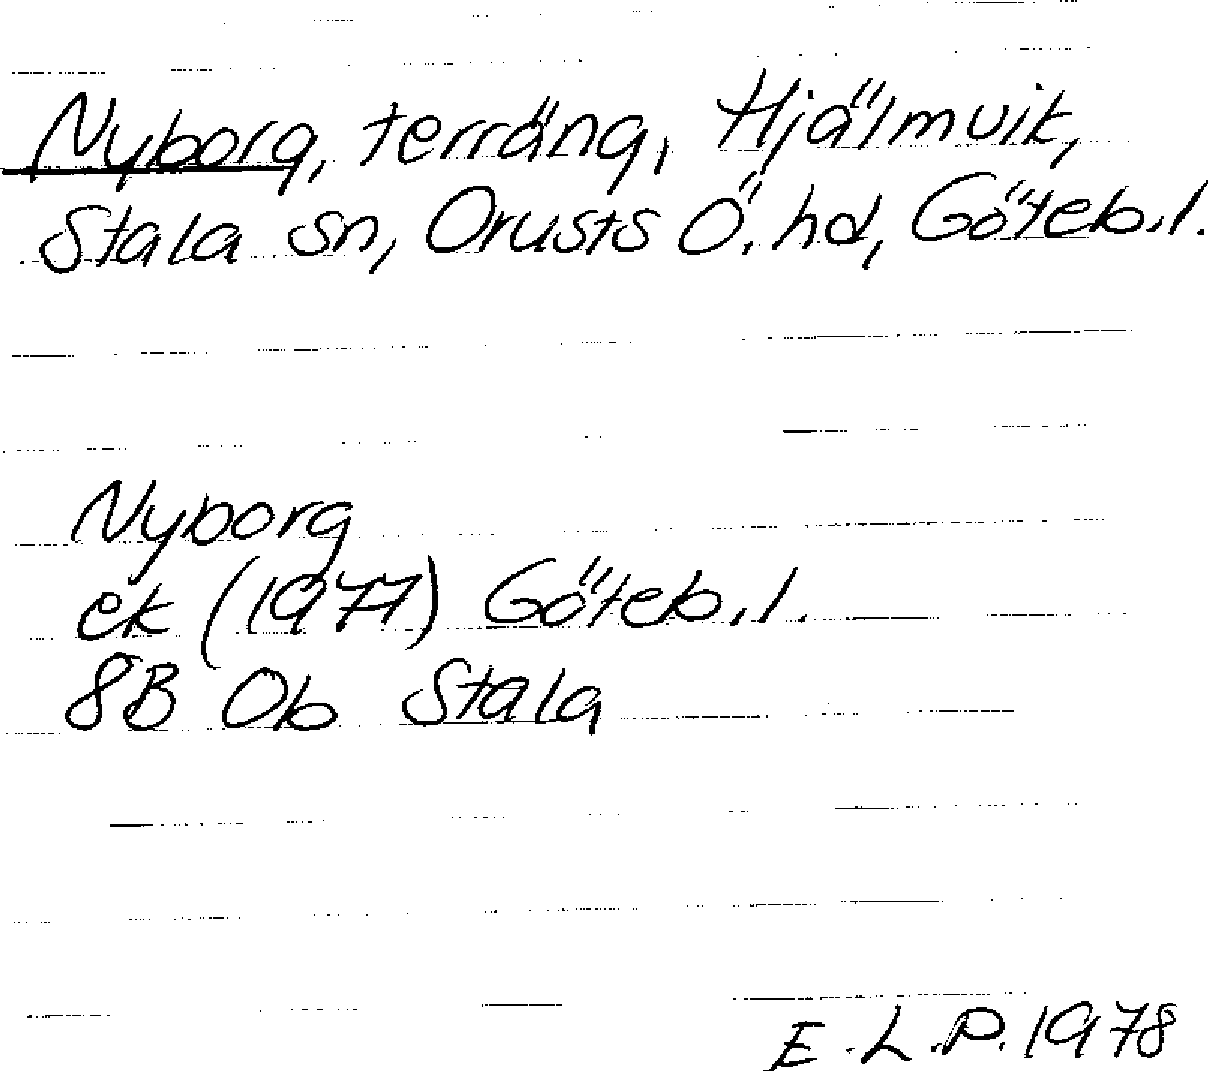 Nyborg, terräng, Hjälmvik,
Stala sn, Orusts Ö. hd, Göteb.l.
Nyborg
ek (1977) Göteb.l.
8B 0b Stala
E.L.P. 1978